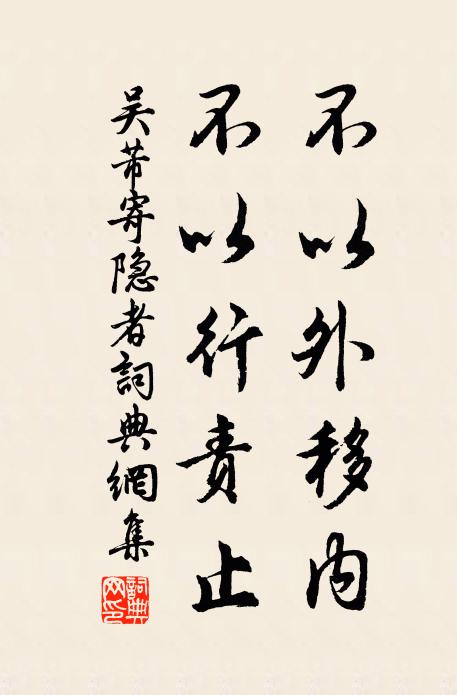 不以外移内
不以行责止
吴芾寄隐者詞典網集
詞典网印